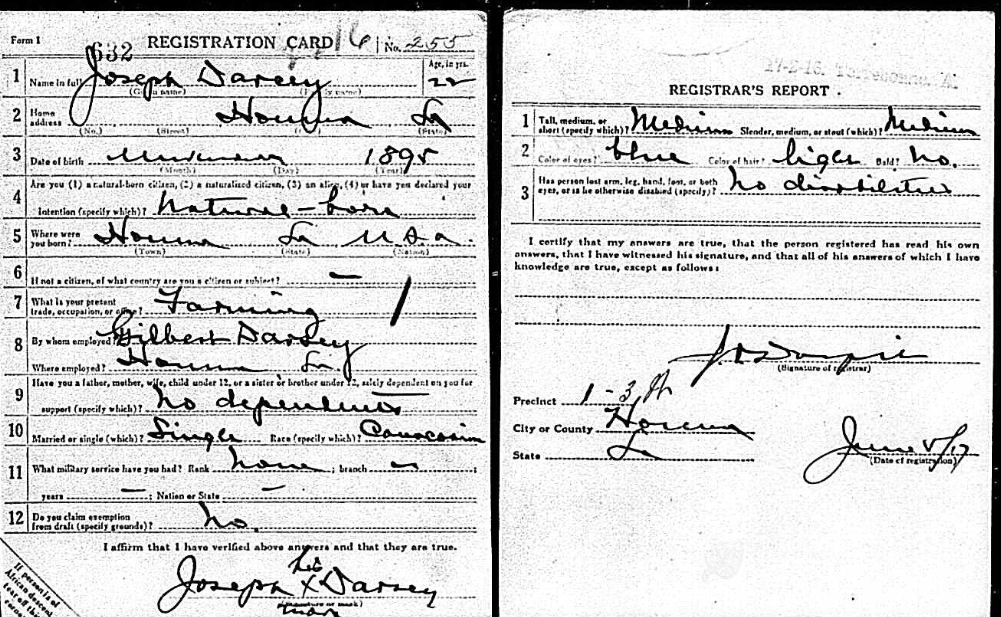 Form 1 632 REGISTRATION CARD 16 No. 255
1 Name in full Joseph Darsey Age, in yrs. 22
(Given name) (Family name)
2 Home address Houma La
(No.) (Street) (State)
3 Date of birth 1895
(Month) (Day) (Year)
4 Are you (1) a natural-born citizen, (2) a naturalized citizen, (3) an alien, (4) or have you declared your
intention (specify which)? Natural-born
5 Where were you born? Houma La U.S.a.
(Town) (State) (Nation)
6 If not a citizen, of what country are you a citizen or subject? —
7 What is your present trade, occupation, or office? Farming
8 By whom employed? Gilbert Darsey
Where employed? Houma La
9 Have you a father, mother, wife, child under 12, or a sister or brother under 12, solely dependent on you for
support (specify which)? No dependents
10 Married or single (which)? Single Race (specify which)? Caucasian
11 What military service have you had? Rank none ; branch — ;
years — ; Nation or State —
12 Do you claim exemption from draft (specify grounds)? No.
I affirm that I have verified above answers and that they are true.
his
Joseph X Darsey
(Signature or mark)
mark
If person is of
African descent,
tear off this
corner
REGISTRAR'S REPORT
1 Tall, medium, or short (specify which)? Medium Slender, medium, or stout (which)? Medium
2 Color of eyes? blue Color of hair? Bald? No.
3 Has person lost arm, leg, hand, foot, or both eyes, or is he otherwise disabled (specify)? No disabilities
I certify that my answers are true, that the person registered has read his own
answers, that I have witnessed his signature, and that all of his answers of which I have
knowledge are true, except as follows:
(Signature of registrar)
Precinct 1-3
City or County Houma
State La
June 5/17
(Date of registration)